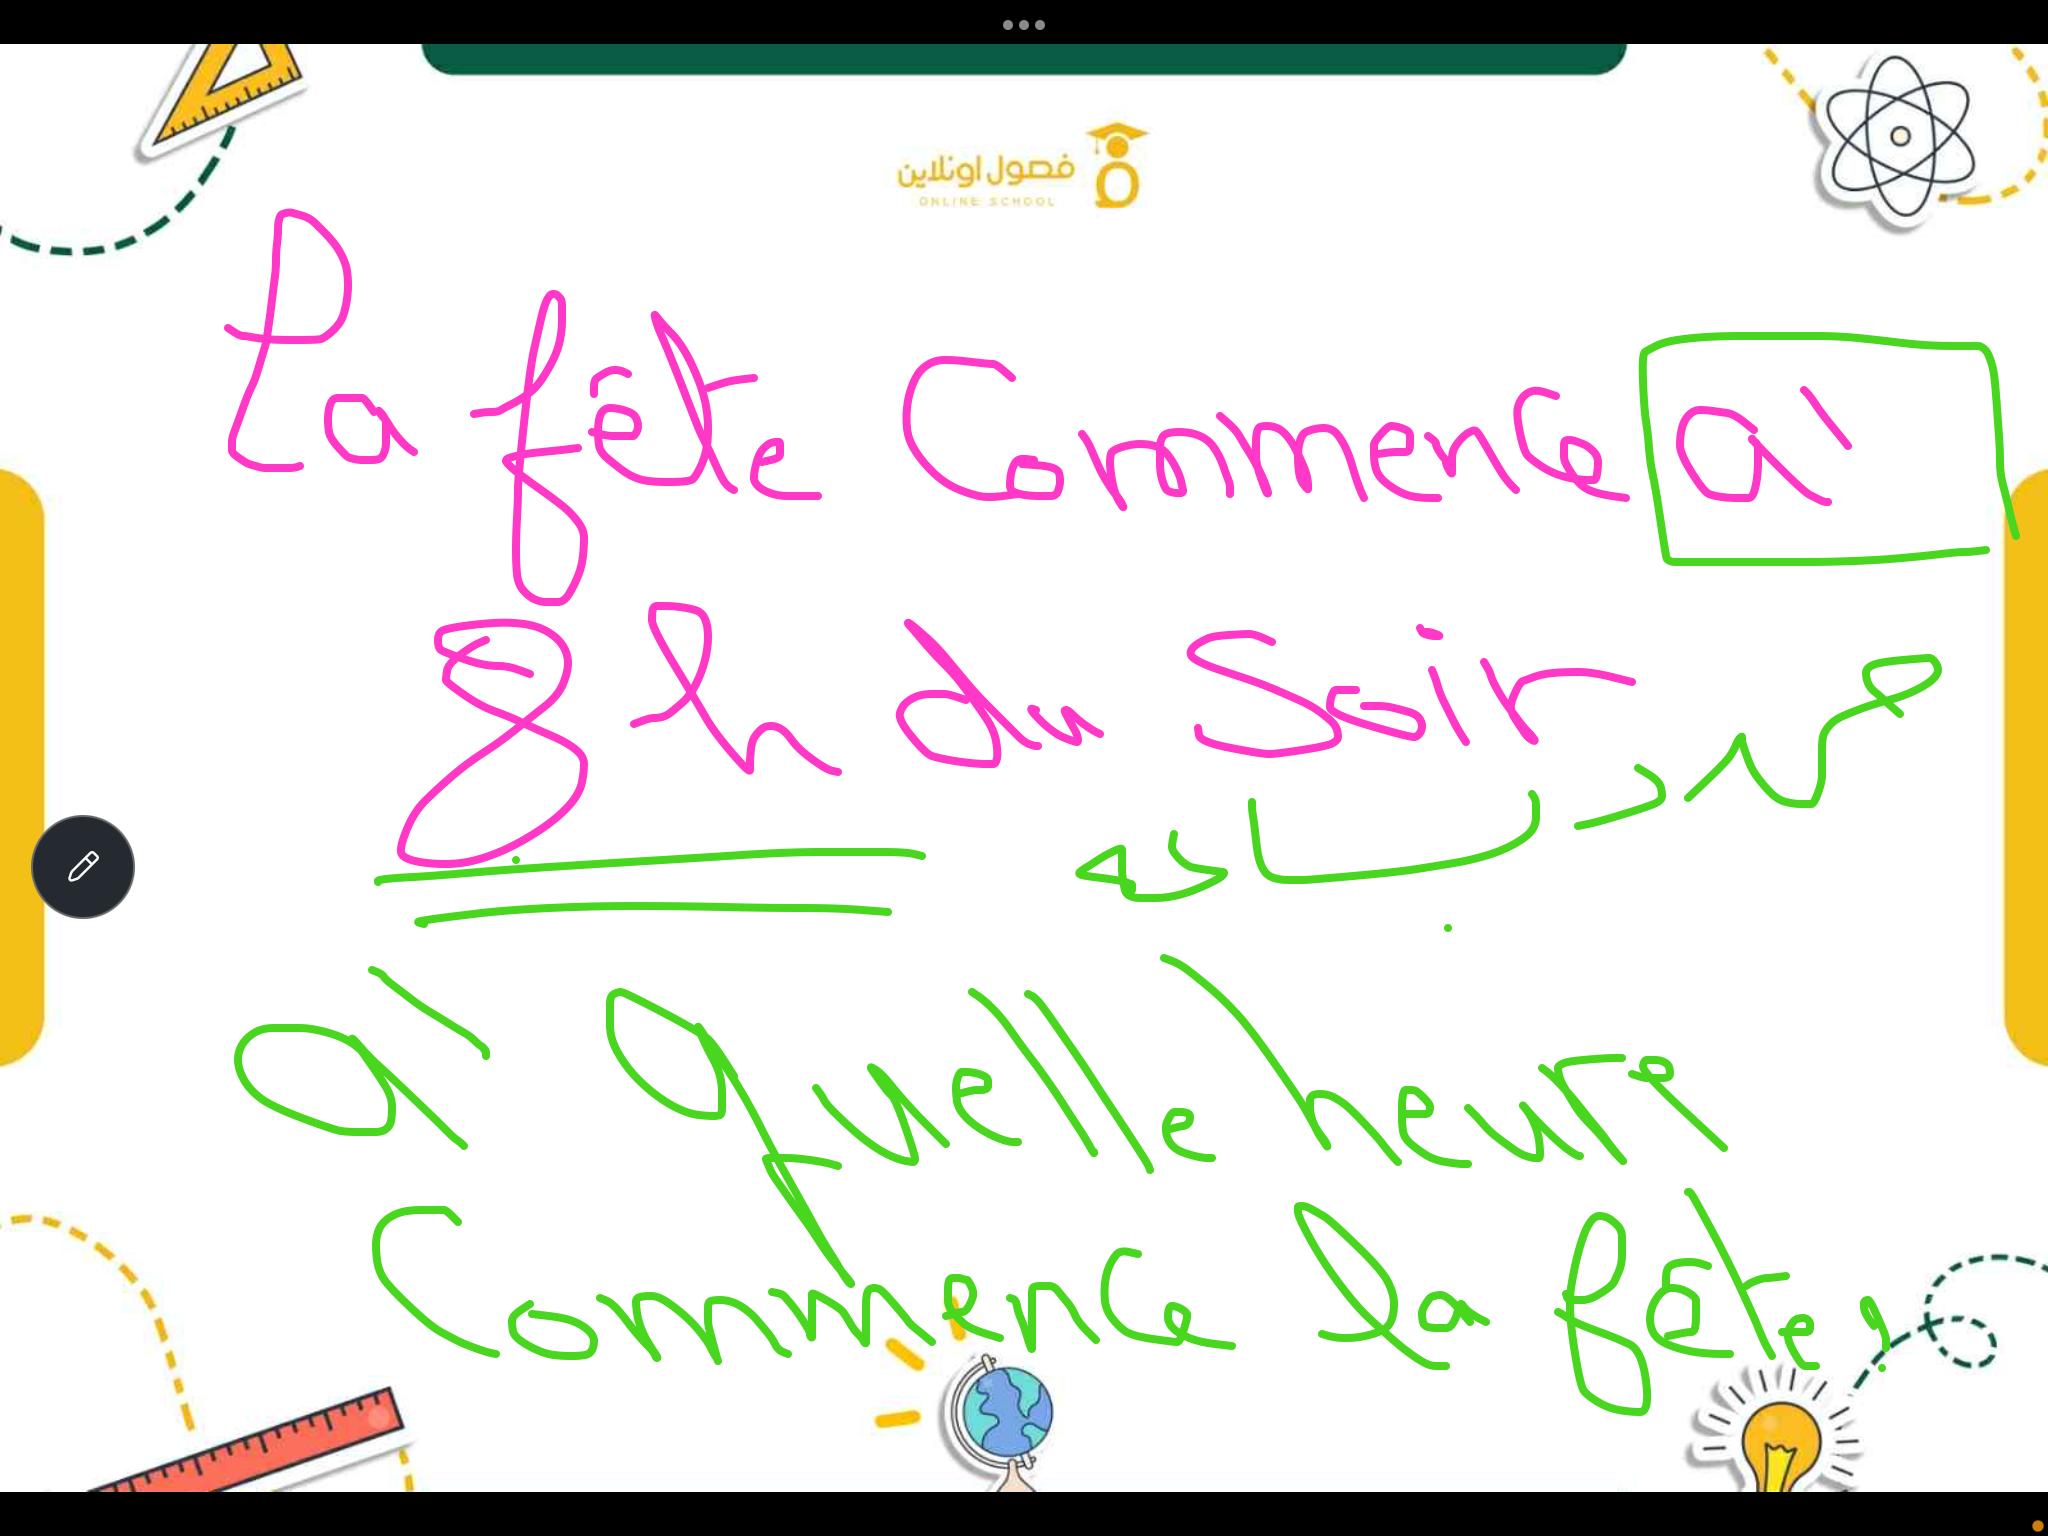 فصول اونلاين
ONLINE SCHOOL
La fête Commence à
8h du Soir
مساء
à quelle heure
Commence la fête?